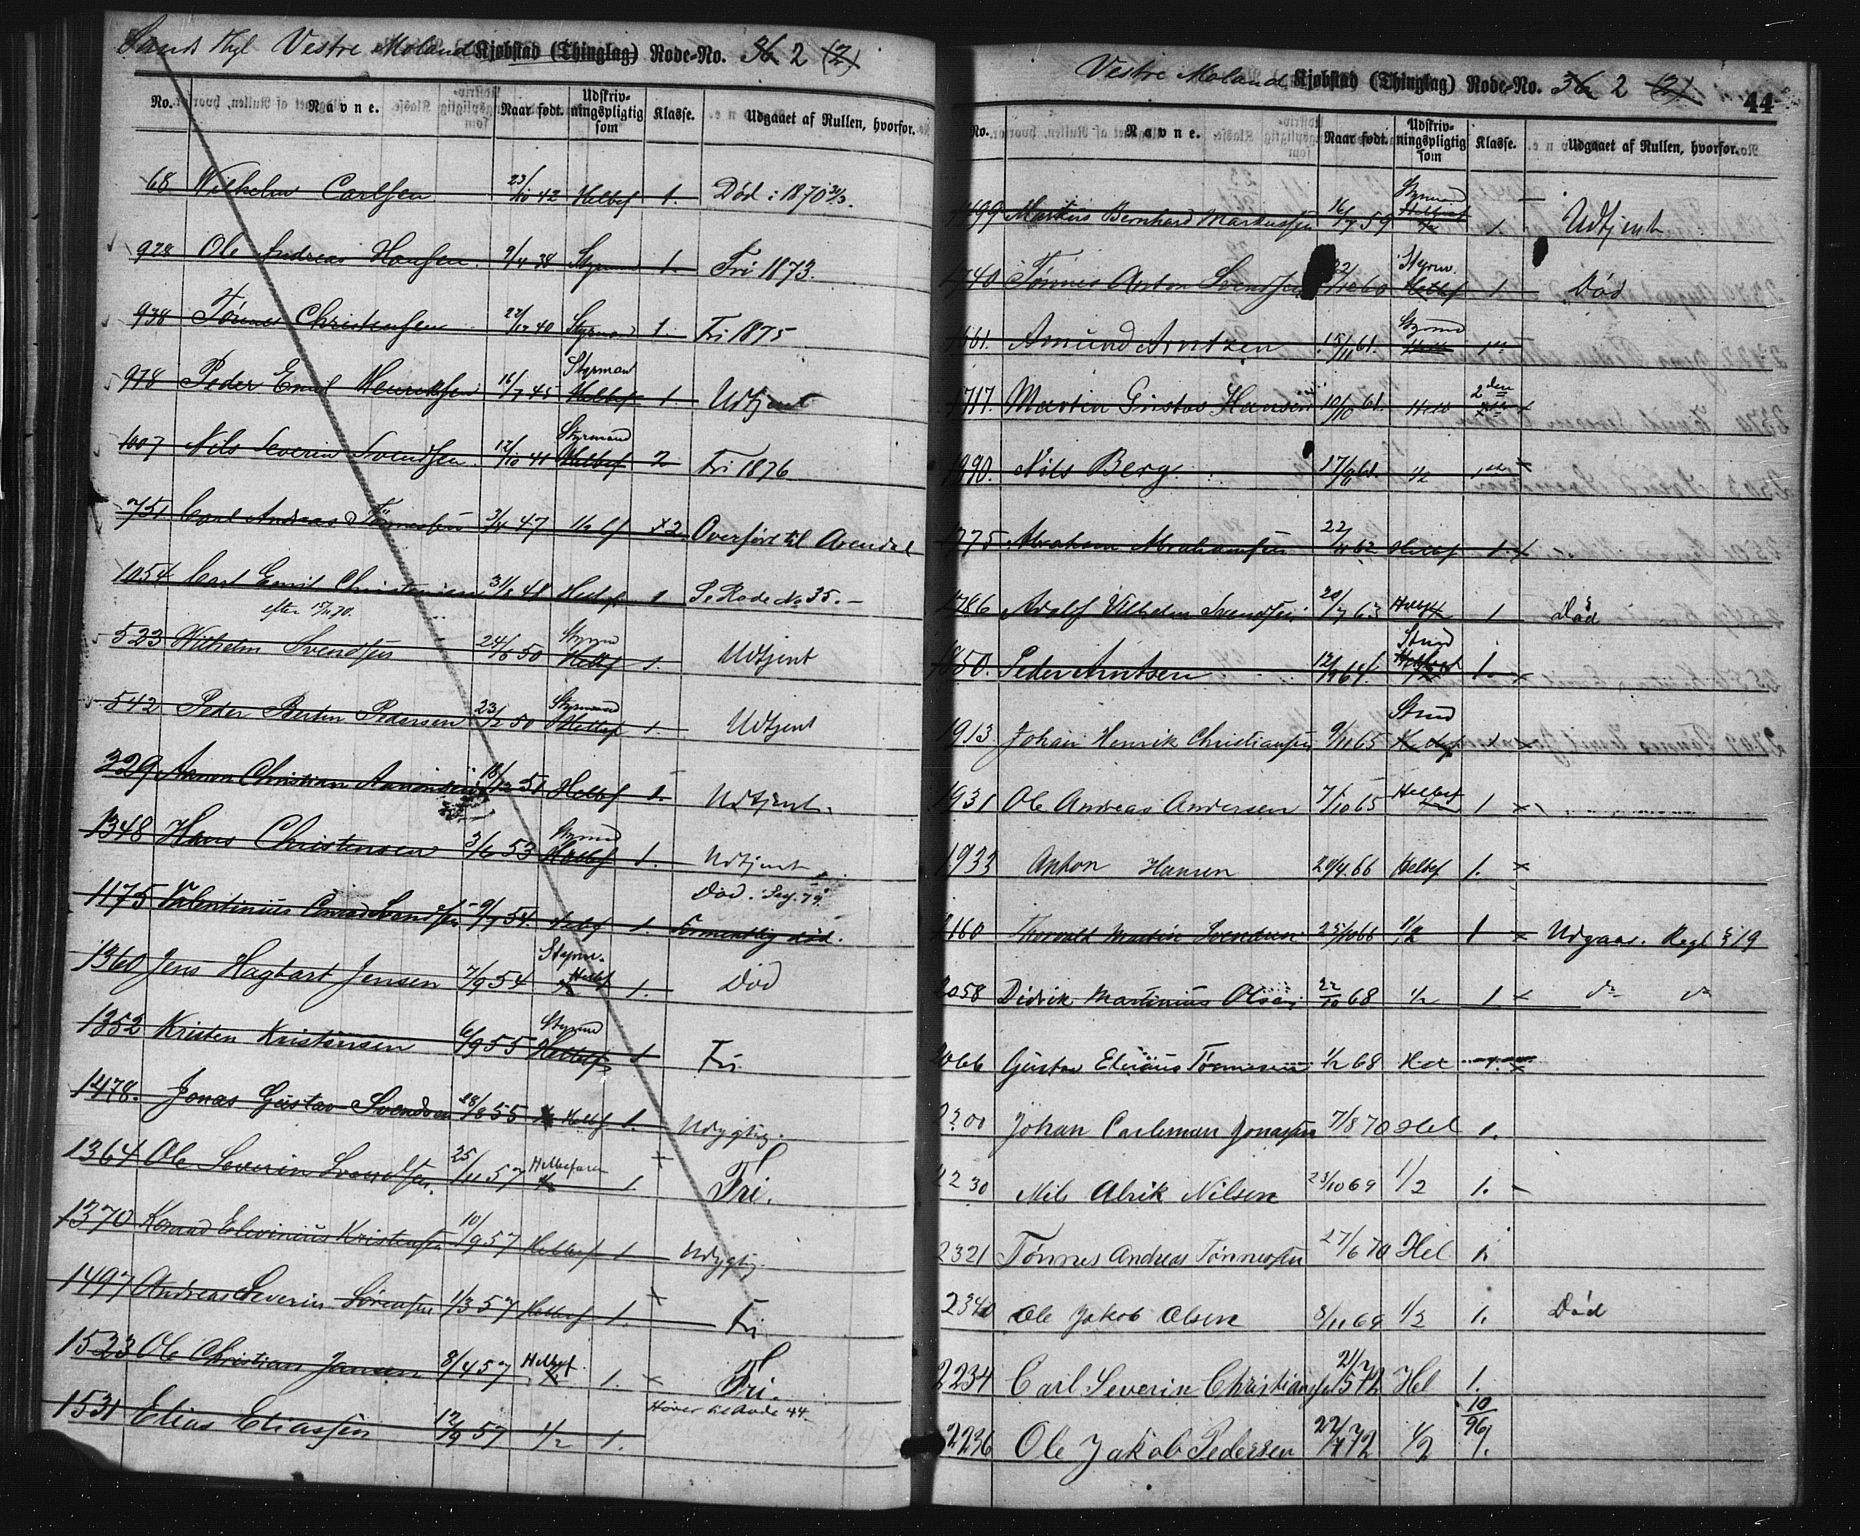 Vestre Moland Kjøbstad (Thinglag) Rode-No. 36 2 (2)
No. Navne. Naar født. Udskrivningspligtig som Klasse. Udgaaet af Rullen, hvorfor.
68 Vilhelm Carlsen 23/10 42 Helbef 1. Død i 1870
928 Ole Andreas Hansen 9/4 38 Styrmd 1. Fri 1873.
938 Tønnes Christensen 23/12 40 Styrmd 1. Fri 1875
978 Peder Emil Henriksen 16/7 45 Styrman Helbef 1. Udtjent
1007 Nils Severin Svendsen 12/10 41 Styrmand Helbef 2 Fri 1876
751 Carl Andreas Tønnessen 3/4 47 1/2 bef x2. Overført til Arendal
1054 Carl Emil Christensen 31/1 48 Helbef 1 Se Rode No 35.
efter
523 Wilhelm Svendsen 24/6 50 Styrmd Helbef 1. Udtjent
542 Peder Bertin Pedersen 23/2 50 Styrmand Helbef 1. Udtjent
329 Aanon Christian Aanonsen 51 Helbef 1. Udtjent.
1348 Hans Christensen 3/6 53 Styrmd Helbef 1. Udtjent
1175 Valentinius Conrad Svendsen 9/7 54. Helbef 1. Død. Formentlig død.
1360 Jens Hagbart Jensen 7/9 54 Styrm. Helbef 1. Død
1352 Kristen Kristensen 6/9 55 Styrmd Helbef 1 Fri.
1478. Jonas Gustav Svendsen 28/8 55 Helbf 1. Udygtig.
1364 Ole Severin Svendsen. 25/11 57 Helbefaren 1. Fri.
1370 Konrad Edevinius Kristensen 10/9 57 Helbef 1 Udygtig.
1497 Andreas Severin Sørensen 1/3 57 Helbef 1. Fri
1523 Ole Christian Jansen 8/4 57 Helbef. 1/2 1. Fri.
1531 Elias Eliassen 12/9 57 1/2 1. Hører til Rode 44
Vestre Moland Kjøbstad (Thinglag) Rode-No. 36 2 (2)
44
No. Navne. Naar født. Udskrivningspligtig som Klasse. Udgaaet af Rullen, hvorfor.
1699 Markus Bernhard Markussen 16/7 59 Styrmd Helbef 1/2 1. Udtjent
1740 Tønnes Anton Svendsen 22/12 60 Styrm. Helbef 1 Død
1661. Amund Arntzen 15/11 61. Styrmd
1717. Martin Gustav Hansen 19/10 61. 2den
1690. Nils Berg. 17/6 61. 1/2
1775 Abraham Abrahamsen 22/11 62 Helbef 1. x
1786 Adolf Vilhelm Svendsen 20/7 63 Helbef 1 Død
1850. Peder Arntsen 12/1 64. Strmd 1. x
1913 Johan Henrik Christiansen 9/11 65 Strmd Helbef 1 x
1931 Ole Andreas Andersen 7/10 65 Helbef 1 x
1933 Anton Hansen 20/4.66 Helbef 1. x
2160 Thorvald Martin Svendsen 25/10 66 1/2 1 x Udgaar. Regl §19
2058 Didrik Martinius Olsen 22/10 68 1/2 1. x do do
2066 Gustav Elenius Tønnessen 1/2 68 Hel 1. x
2200 Johan Carleman Jonassen 7/8 70 Hel 1.
2230 Nils Alrik Nilsen 23/10 69 1/2 1.
2321 Tønnes Andreas Tønnessen 27/6 70 Hel 1.
2340 Ole Jakob Olsen 8/11 69 1/2 1. Død
2234 Carl Severin Christiansen 21/5 72 Hel 1.
2236 Ole Jakob Pedersen 22/7 72 1/2 1. 10/96